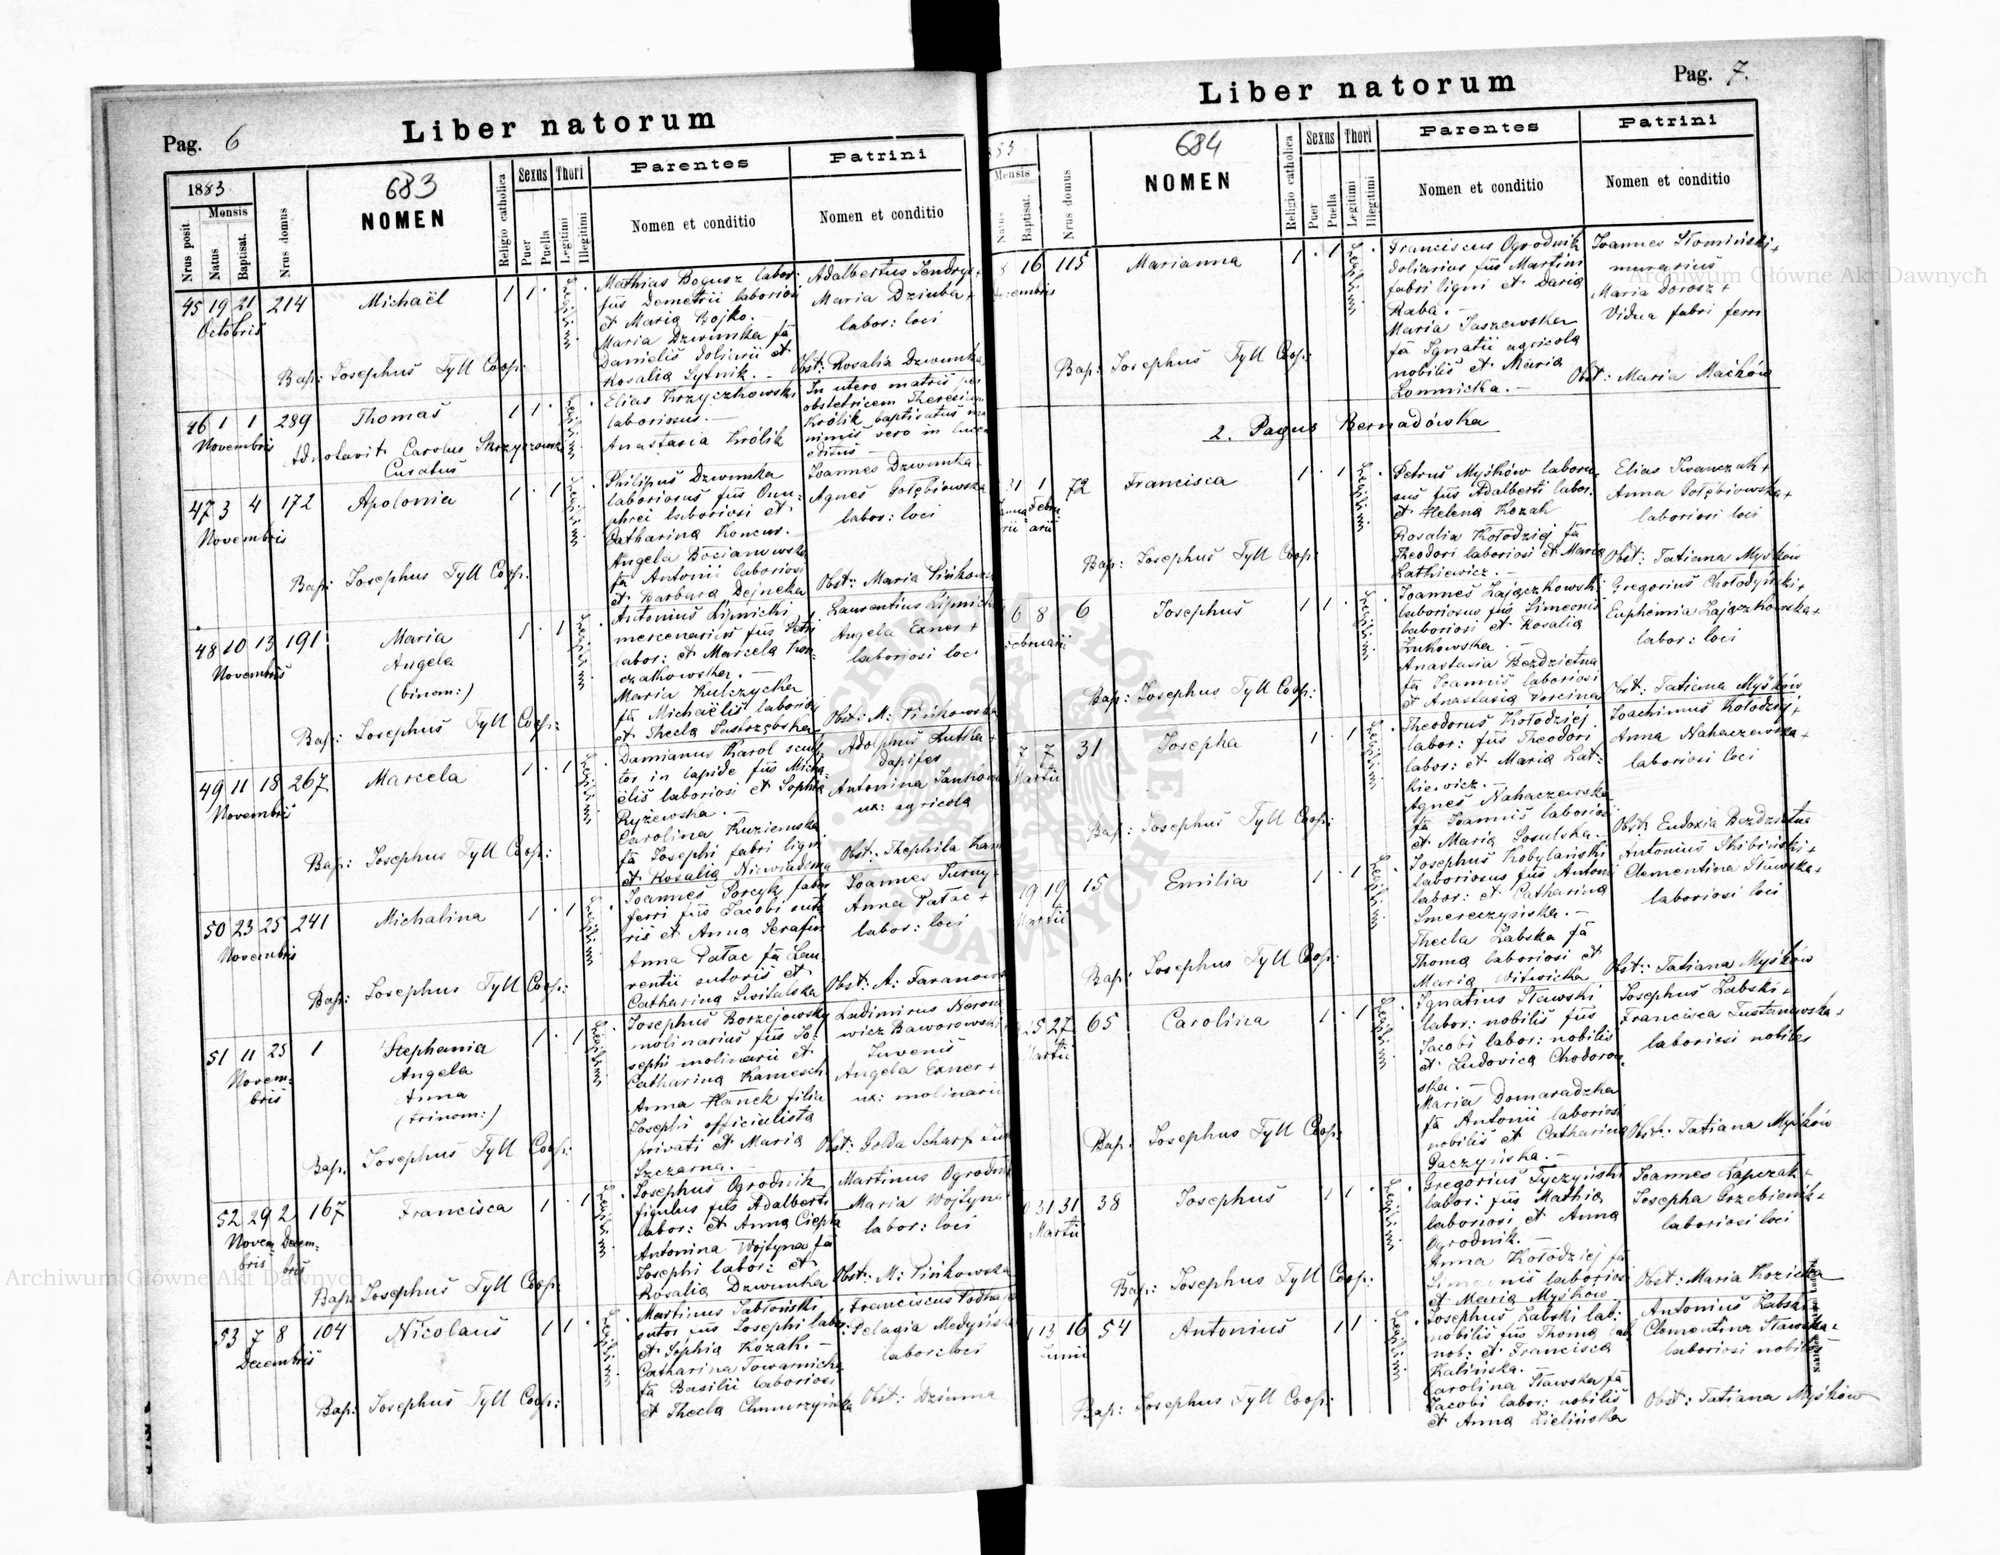 Pag. 6
Liber natorum
1883
Nrus posit.
Mensis
Natus
Baptisat.
Nrus domus
683
NOMEN
Religio catholica
Sexus
Puer
Puella
Thori
Legitimi
Illegitimi
Parentes
Nomen et conditio
Patrini
Nomen et conditio
45 19 21 214 Michaël 1 1
Octobris
Mathias Bogusz labor:
fius Demetrii laboriosi
et Maria Bojko. —
Maria Dzwinka fa
Danielis doliarii et
Rosalia Sytnik. —
Adalbertus Jendrys +
Maria Dziuba +
labor: loci
Obst: Rosalia Dzwinka
Bap: Josephus Tyll Coop:
46 1 1 289 Thomas 1 1
Novembris
Adnotavit Carolus Skrzyszowski
Curatus
Elias Krzyczkowski
laboriosus. —
Anastasia Królik
In utero matris per
obstetricem Theresiam
Królik baptisatus
nimis vero in lucem
editus —
47 3 4 172 Apolonia 1 1
Novembris
Philipus Dzwinka
laboriosus fius Onu:
phrei laboriosi et
Catharina Koncur.
Angela Bocianowska
fa Antonii laboriosi
et Barbara Dejneka
Joannes Dzwinka
Agnes Gołębiowska
labor: loci
Obst: Maria Pińkowska
Bap: Josephus Tyll Coop.
48 10 13 191 Maria 1 1
Novembris
Angela
(binom:)
Antonius Lipnicki
mercenarius fius Petri
labor: et Marcela Kor-
czakowska. —
Maria Kulczycka
fa Michaëlis laboriosi
et Thecla Jastrzębska
Laurentius Lipnicki
Angela Exner +
laboriosi loci
Obst: M: Pińkowska
Bap: Josephus Tyll Coop:
49 11 18 267 Marcela 1 1
Novembris
Damianus Karol sculp
tor in lapide fius Micha-
ëlis laboriosi et Sophia
Ryżewska. —
Carolina Kuziemska
fa Josephi fabri ligni
et Rosalia Niewiadoma
Adolphus Kutha +
dapifer
Antonina Jankowa
ux: agricola
Obst: Thephila Kam
Bap: Josephus Tyll Coop:
50 23 25 241 Michalina 1 1
Novembris
Joannes Porcyk faber
ferri fius Jacobi suto
ris et Anna Serafin
Anna Patac fa Lau
rentii sutoris et
Catharina Switalska
Joannes Surny +
Anna Patac +
labor: loci
Obst: A: Faranows
Bap: Josephus Tyll Coop:
51 11 25 1 Stephania 1 1
Novem-
bris
Angela
Anna
(trinom:)
Josephus Borzejowsky
molinarius fius Jo-
sephi molinarii et
Catharina Kamesch
Anna Hanek filia
Josephi officialista
privati et Maria
Szczarna. —
Ladimirus Nerono
wicz Baworowski
Juvenis
Angela Exner +
ux: molinarii
Obst: Golda Scharf
Bap. Josephus Tyll Coop:
52 29 2 167 Francisca 1 1
Novem- Decem-
bris bris
Josephus Ogrodnik
figulus fius Adalberti
labor: et Anna Ciepła
Antonina Wojtyna fa
Josephi labor: et
Rosalia Dzwinka
Martinus Ogrodnik
Maria Wojtyna
labor: loci
Obst: M: Pińkowska
Bap: Josephus Tyll Coop:
53 7 8 104 Nicolaus 1 1
Decembris
Martinus Jabłoński
sutor fius Josephi labor:
et Sophia Kozak. —
Catharina Towarnicka
fa Basilii laboriosi
et Thecla Chmurzyńska
Franciscus Podhaj
Pelagia Medyńska
labor: loci
Obst: Dziuma
Bap: Josephus Tyll Coop:
Liber natorum
Pag. 7.
Mensis
Natus
Baptisat.
Nrus domus
684
NOMEN
Religio catholica
Sexus
Puer
Puella
Thori
Legitimi
Illegitimi
Parentes
Nomen et conditio
Patrini
Nomen et conditio
8 16 115 Marianna 1 1
Decembris
Franciscus Ogrodnik
doliarius fius Martini
fabri ligni et Daria
Raba. —
Maria Jaszewska
fa Ignatii agricola
nobilis et Maria
Łomnicka. —
Joannes Słomiński +
murarius
Maria Dorosz +
Vidua fabri ferri
Obst: Maria Maćków
Bap: Josephus Tyll Coop:
2. Pagus Bernadówka
31 1 72 Francisca 1 1
Petrus Myśków laborio-
sus fius Adalberti labor:
et Helena Kozak
Rosalia Kołodziej fa
Theodori laboriosi et Maria
Latkiewicz. —
Elias Iwanczak +
Anna Gołębiowska +
laboriosi loci
Obst: Tatiana Myśków
Bap: Josephus Tyll Coop:
6 8 6 Josephus 1 1
Februarii
Joannes Zajączkowski
laboriosus fius Simeonis
laboriosi et Rosalia
Żukowska. —
Anastasia Bezdzietna
fa Joannis laboriosi
et Anastasia Porcina
Gregorius Chołodyński +
Euphemia Zajączkowska +
labor: loci
Obst: Tatiana Myśków
Bap: Josephus Tyll Coop:
7 7 31 Josepha 1 1
Martii
Theodorus Kołodziej
labor: fius Theodori
labor: et Maria Lat-
kiewicz. —
Agnes Nahaczewska
fa Joannis laboriosi
et Maria Sosulska. —
Joachimus Kołodziej +
Anna Nahaczewska +
laboriosi loci
Obst: Eudoxia Bezdzietna
Bap: Josephus Tyll Coop:
19 19 15 Emilia 1 1
Martii
Josephus Kobylański
laboriosus fius Antoni
labor: et Catharina
Smereczyńska. —
Thecla Żabska fa
Thoma laboriosi et
Maria Witwicka
Antonius Skibiński +
Clementina Stawska +
laboriosi loci
Obst: Tatiana Myśków
Bap: Josephus Tyll Coop:
25 27 65 Carolina 1 1
Martii
Ignatius Stawski
labor: nobilis fius
Jacobi labor: nobilis
et Ludovica Chodorow-
ska. —
Maria Domaradzka
fa Antonii laboriosi
nobilis et Catharina
Gaczyńska. —
Josephus Żabski +
Francisca Tustanowska +
laboriosi nobiles
Obst: Tatiana Myśków
Bap: Josephus Tyll Coop:
31 31 38 Josephus 1 1
Martii
Gregorius Tyczyński
labor: fius Mathia
laboriosi et Anna
Ogrodnik. —
Anna Kołodziej fa
Simeonis laboriosi
et Maria Myśków
Joannes Łapczak +
Josepha Grzebienik +
laboriosi loci
Obst: Maria Kozicka
Bap: Josephus Tyll Coop:
13 16 54 Antonius 1 1
Junii
Josephus Żabski lab:
nobilis fius Thoma lab
nob: et Francisca
Kalińska.
Carolina Stawska fa
Jacobi labor: nobilis
et Anna Zielińska
Antonius Żabski
Clementina Stawska +
laboriosi nobiles
Obst: Tatiana Myśków
Bap: Josephus Tyll Coop:
Archiwum Główne Akt Dawnych
Archiwum Główne Akt Dawnych